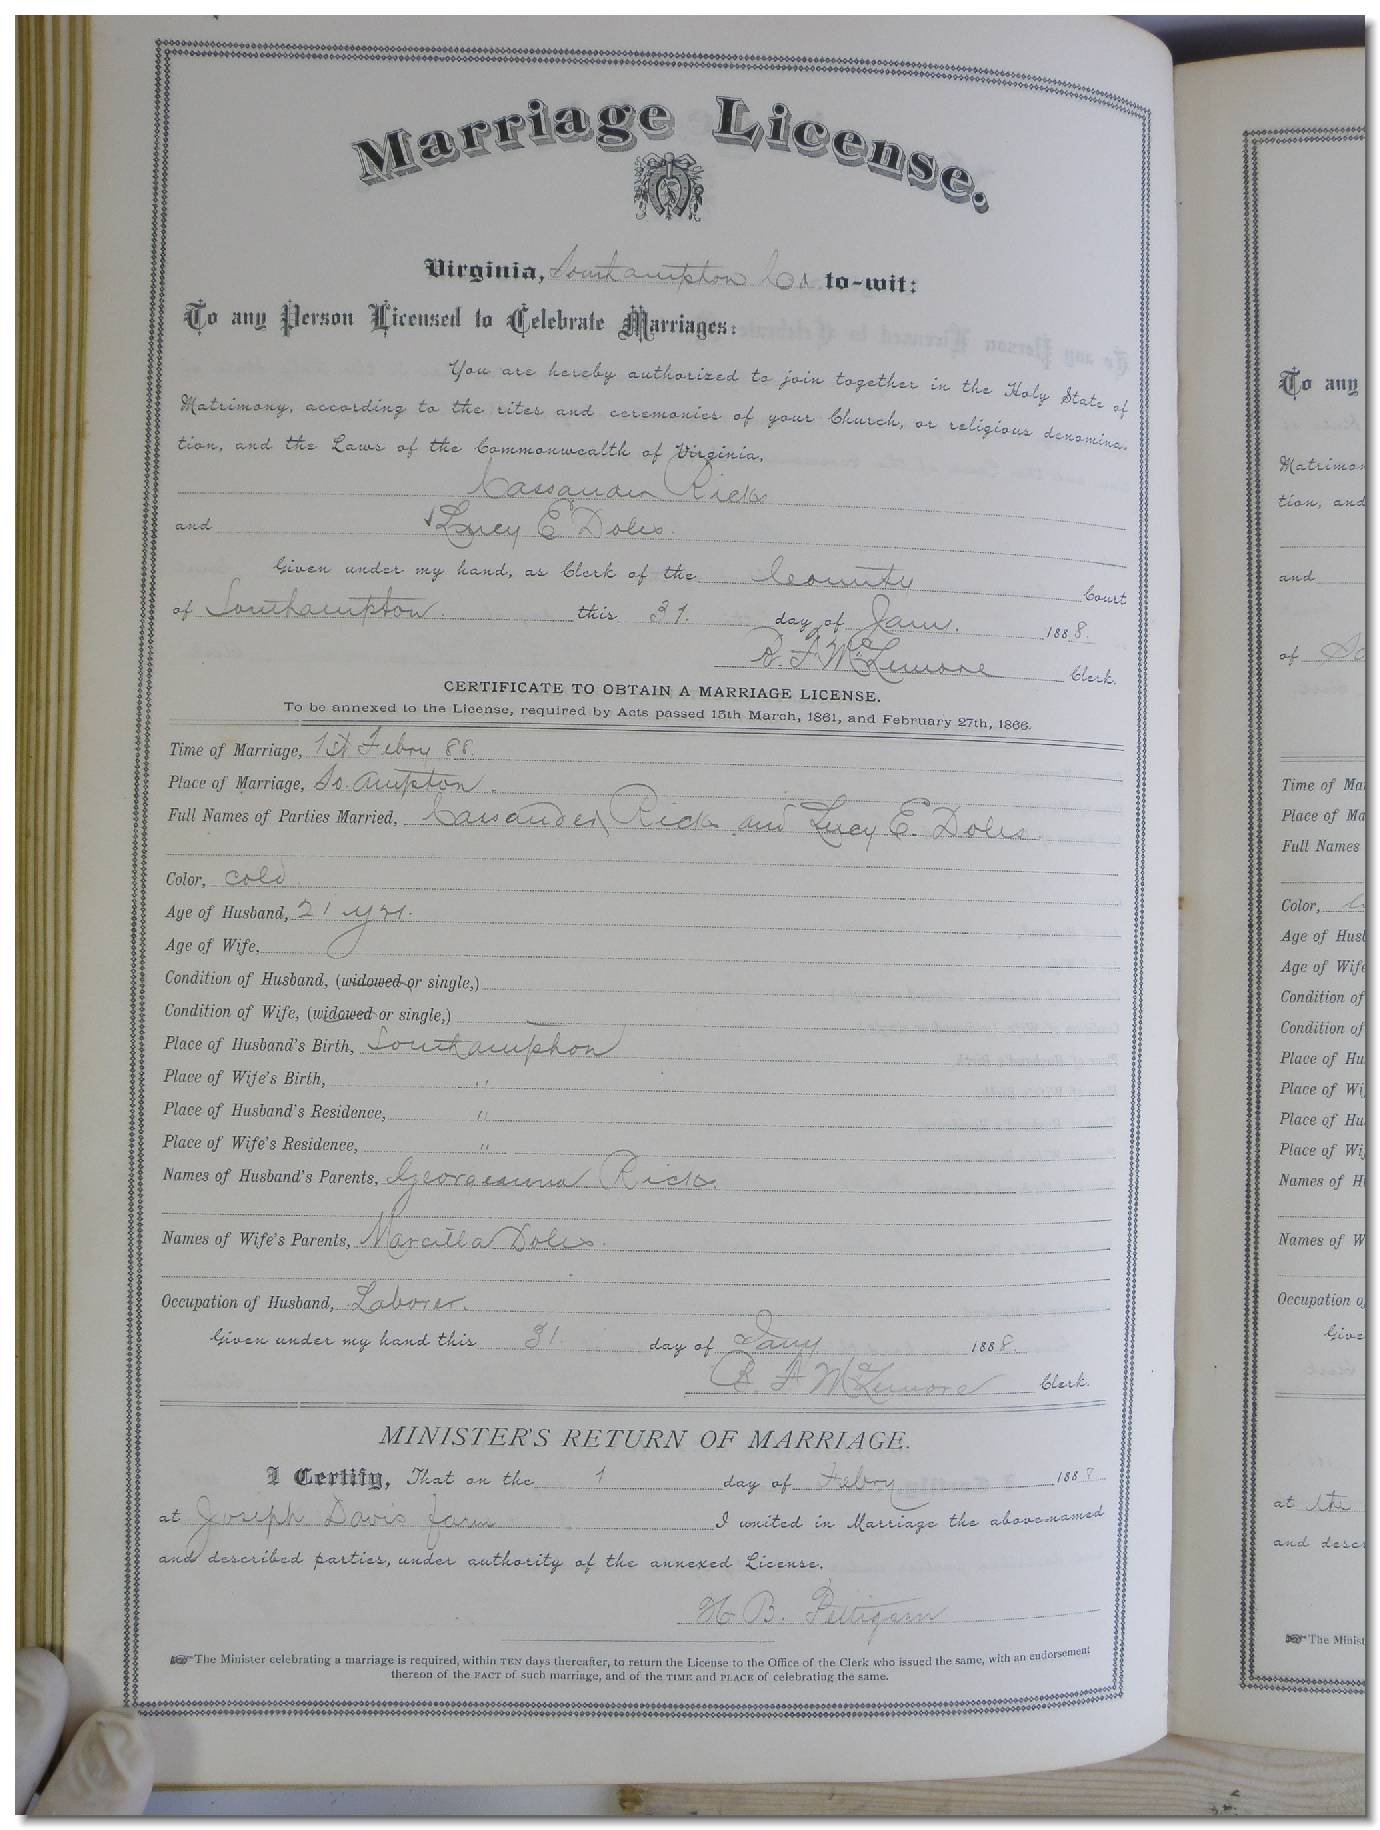 Marriage License.
Virginia, Southampton Co to-wit:
To any Person Licensed to Celebrate Marriages:
You are hereby authorized to join together in the Holy State of
Matrimony, according to the rites and ceremonies of your Church, or religious denomina-
tion, and the Laws of the Commonwealth of Virginia,
Cassander Ricks
and Lucy E Doles.
Given under my hand, as Clerk of the County Court
of Southampton this 31. day of Jany. 1888.
B. F. McLemore Clerk.
CERTIFICATE TO OBTAIN A MARRIAGE LICENSE.
To be annexed to the License, required by Acts passed 15th March, 1861, and February 27th, 1866.
Time of Marriage, 1st Febry 88.
Place of Marriage, So.ampton.
Full Names of Parties Married, Cassander Ricks and Lucy E. Doles
Color, cold
Age of Husband, 21 yrs.
Age of Wife,
Condition of Husband, (widowed or single,)
Condition of Wife, (widowed or single,)
Place of Husband's Birth, Southampton
Place of Wife's Birth, "
Place of Husband's Residence, "
Place of Wife's Residence, "
Names of Husband's Parents, Georgeanna Ricks.
Names of Wife's Parents, Marcilla Doles.
Occupation of Husband, Laborer.
Given under my hand this 31 day of Jany 1888.
B. F. McLemore Clerk.
MINISTER'S RETURN OF MARRIAGE.
I Certify, That on the 1 day of Febry 1888
at Joseph Davis farm I united in Marriage the above-named
and described parties, under authority of the annexed License.
B. Pettigrew
☞ The Minister celebrating a marriage is required, within TEN days thereafter, to return the License to the Office of the Clerk who issued the same, with an endorsement
thereon of the FACT of such marriage, and of the TIME and PLACE of celebrating the same.
To any
Matrimo
tion, and
and
of
Time of Ma
Place of Ma
Full Names
Color,
Age of Hus
Age of Wife
Condition of
Condition of
Place of Hu
Place of Wi
Place of Hu
Place of Wi
Names of H
Names of W
Occupation o
Give
at the
and desc
☞ The Minist